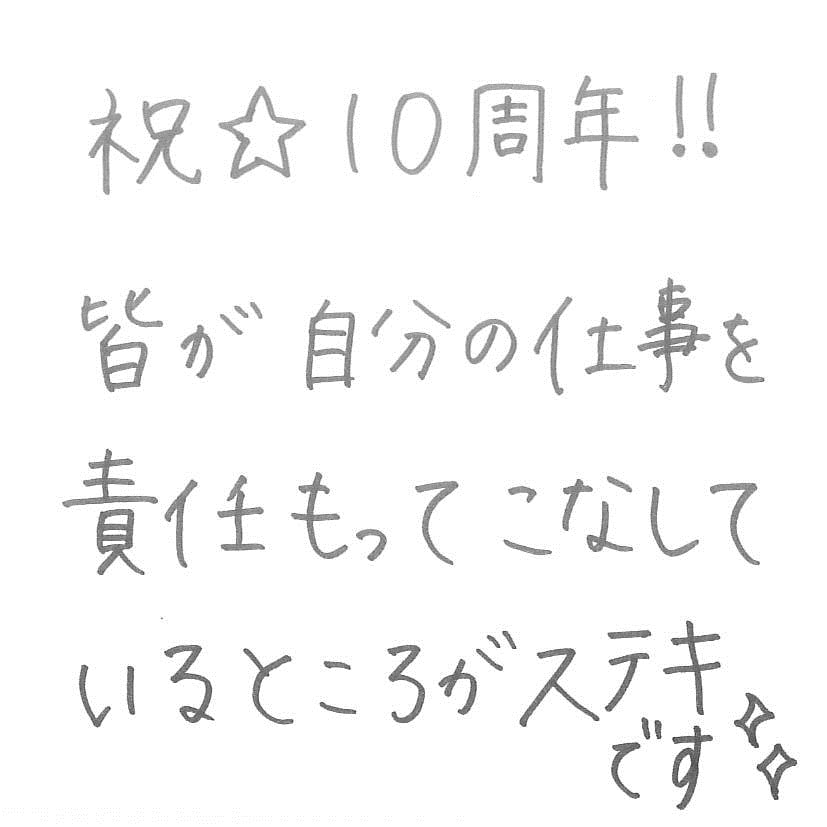 祝☆10周年!!
皆が自分の仕事を
責任もってこなして
いるところがステキ
です